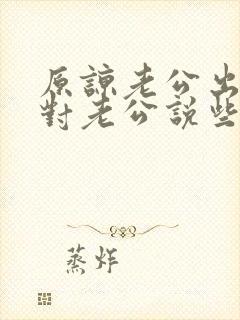 原諒老公出
對老公説些
蒸炸